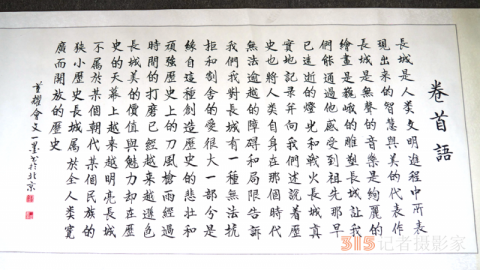 卷首語
長城是人类文明進程中所表
現出来的智慧與美的代表作
長城是無聲的音樂是絢麗的
繪畫是巍峨的雕塑長城讓我
們能通過他感受到祖先那早
已逝的燈光和戰火長城真
實地記录并向我們述說着歷
史也將人类自身在那個時代
無法逾越的障碍和局限告訴
我們我對長城有一種無法抗
拒和割舍的愛很大一部分是
緣自這種創造歷史的悲壯和
頑強歷史上的刀風槍雨經過
時間的打磨已經越来越遜色
長城美的價值與魅力却在歷
史的天幕上越来越明亮長城
不属於某個朝代某個民族的
狹小歷史長城属於全人类寬
廣而開放的歷史
董耀會文 一墨书於北京
315记者摄影家